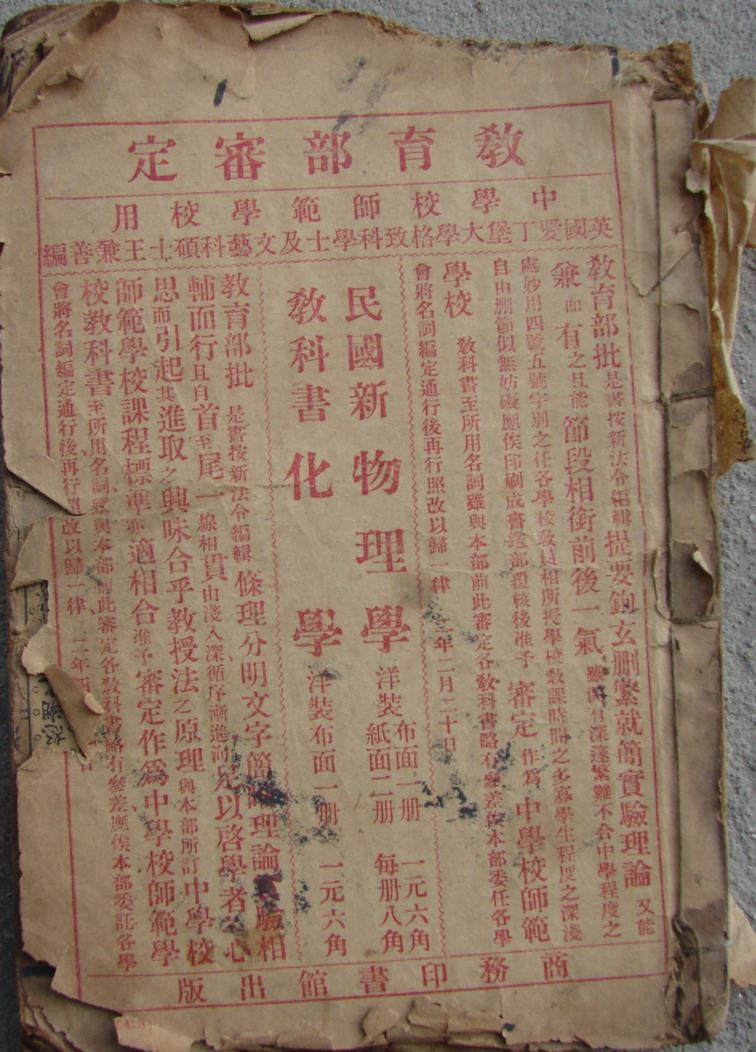 教育部審定
中學校師範學校用
英國愛丁堡大學格致科學士及文藝科碩士王兼善編
教育部批 是書按新法令編輯提要鉤玄刪繁就簡實驗理論又能
兼而有之且能節段相銜前後一氣雖間有深邃繁難不合中學程度之
處妙用四號五號字別之任各學校教員相所授學校教課時間之多寡學生程度之深淺
自由刪節似無妨礙應俟印刷成書送部覆核後准予審定作爲中學校師範
學校教科書至所用名詞雖與本部前此審定各教科書略有參差俟本部委任各學
會將名詞編定通行後再行照改以歸一律 二年二月二十日
民國新
教科書
物理學 洋裝 布面一册 一元六角
紙面二册 每册八角
化學 洋裝布面一册 一元六角
教育部批 是書按新法令編輯條理分明文字簡 理論實驗相
輔而行且自首至尾一線相貫由淺入深循序漸進洵足以啓學者之心
思而引起其進取之興味合乎教授法之原理與本部所訂中學校
師範學校課程標準亦適相合准予審定作爲中學校師範學
校教科書至所用名詞雖與本部前此審定各教科書略有參差應俟本部委託各學
會將名詞編定通行後再行照改以歸一律 二年四
商務印書館出版